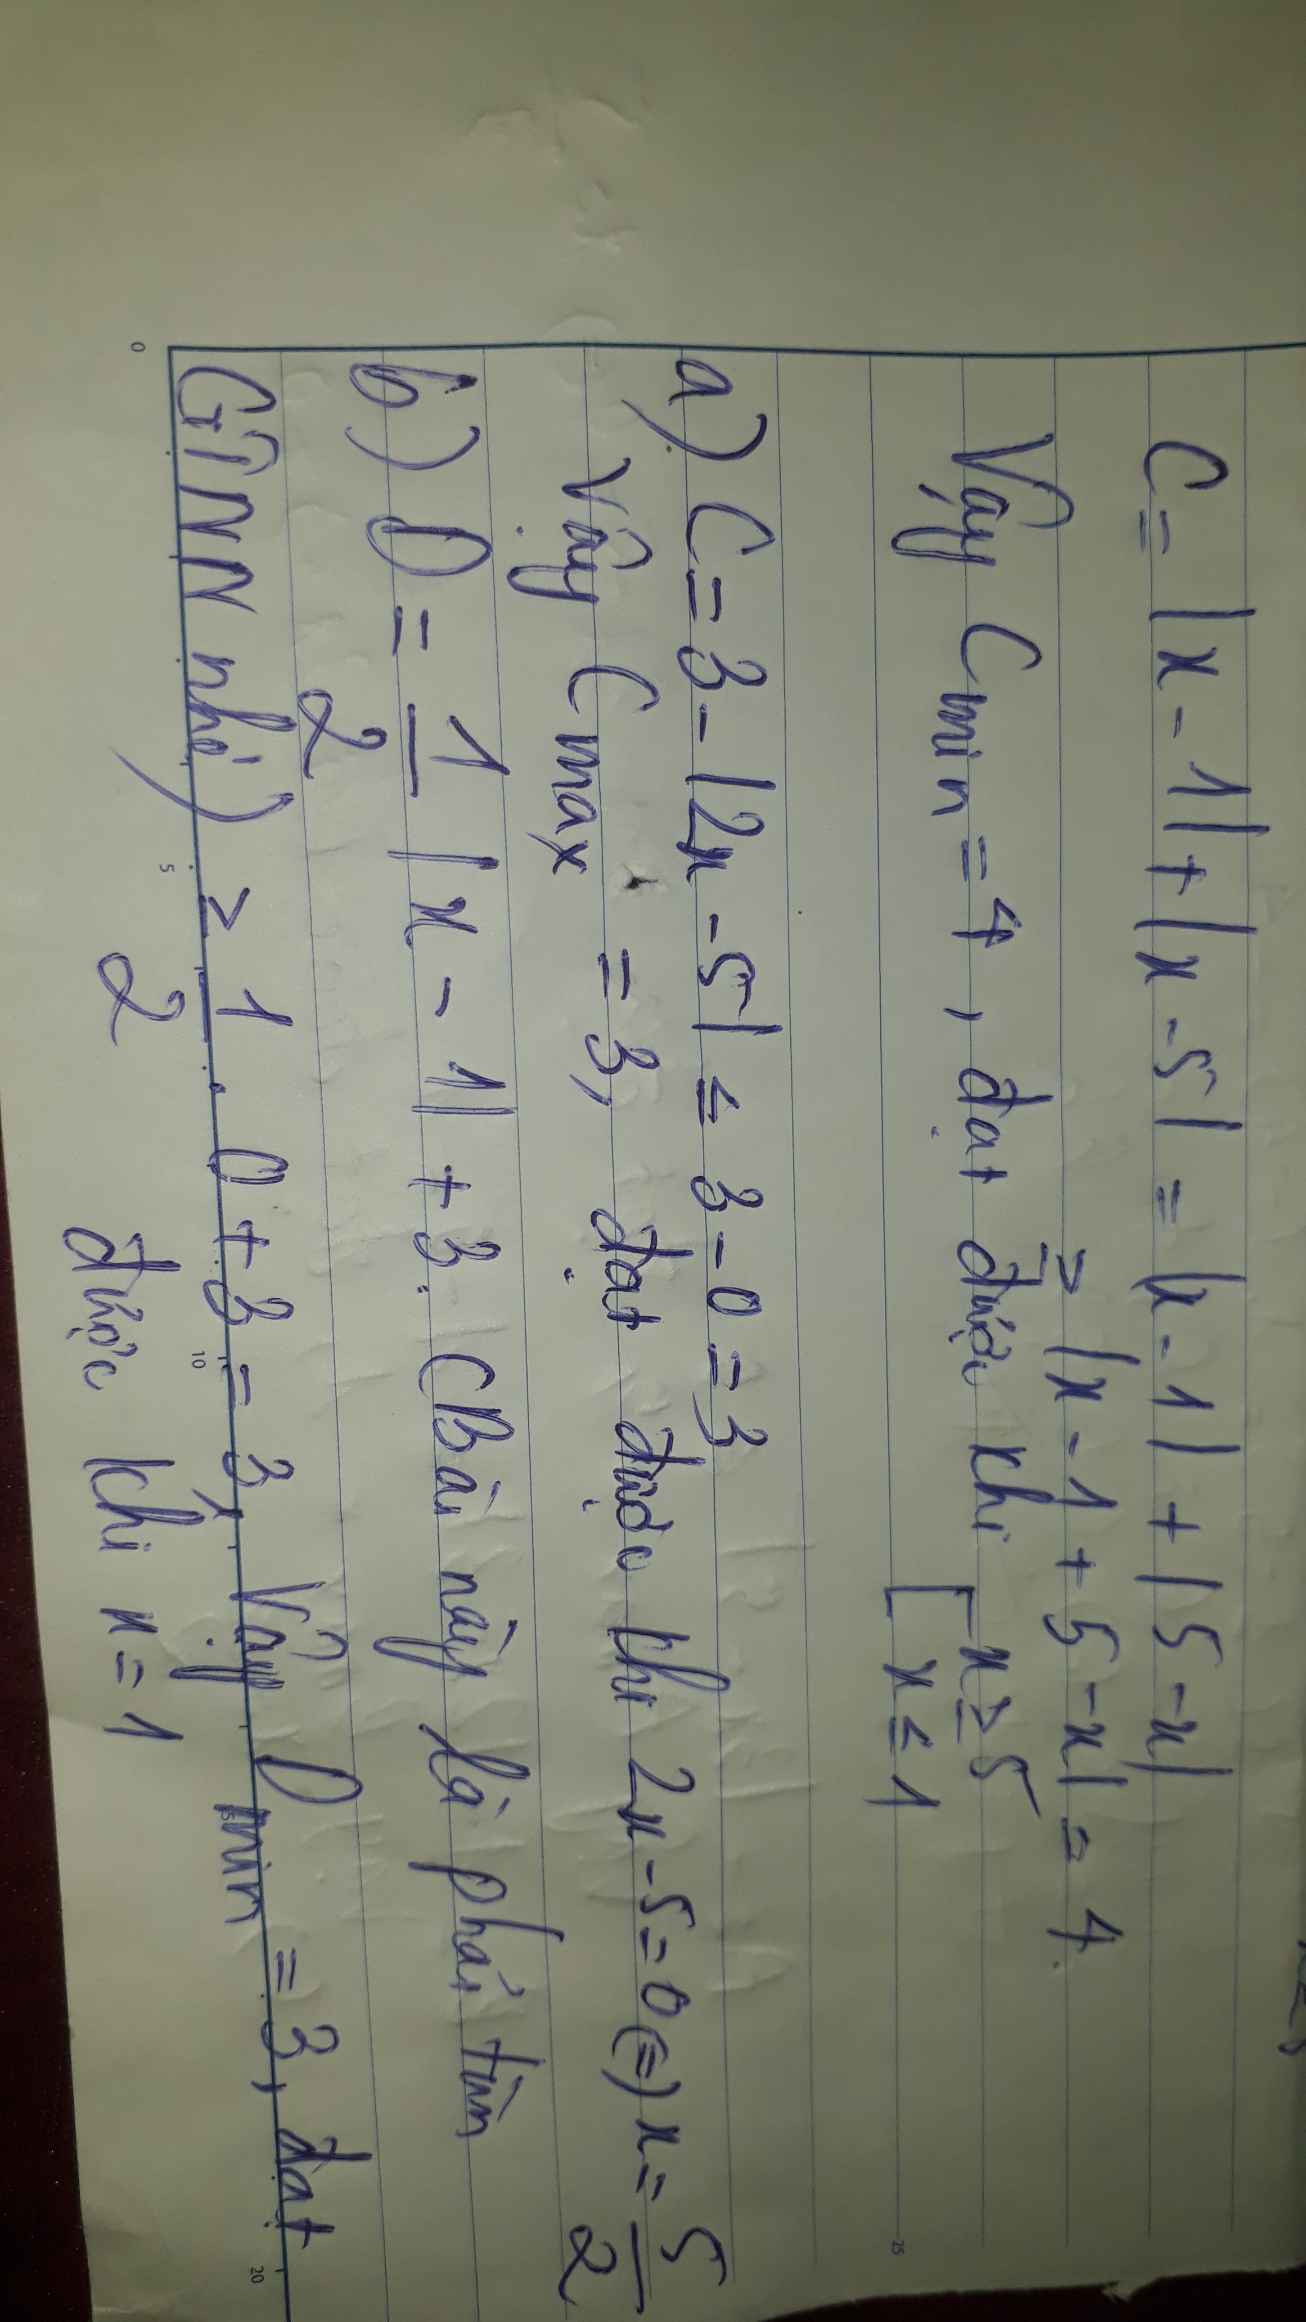 C = |x - 1| + |x - 5| = |x - 1| + |5 - x|
≥ |x - 1 + 5 - x| = 4.
Vậy C min = 4, đạt được khi [ x ≥ 5
x ≤ 1
a) C = 3 - |2x - 5| ≤ 3 - 0 = 3
Vậy C max = 3, đạt được khi 2x - 5 = 0 (=) x = 5/2
b) D = 1/2 |x - 1| + 3. (Bài này là phải tìm
GTNN nhé) ≥ 1/2 . 0 + 3 = 3, Vậy D min = 3, đạt
được khi x = 1
0 5 10 15 20
25